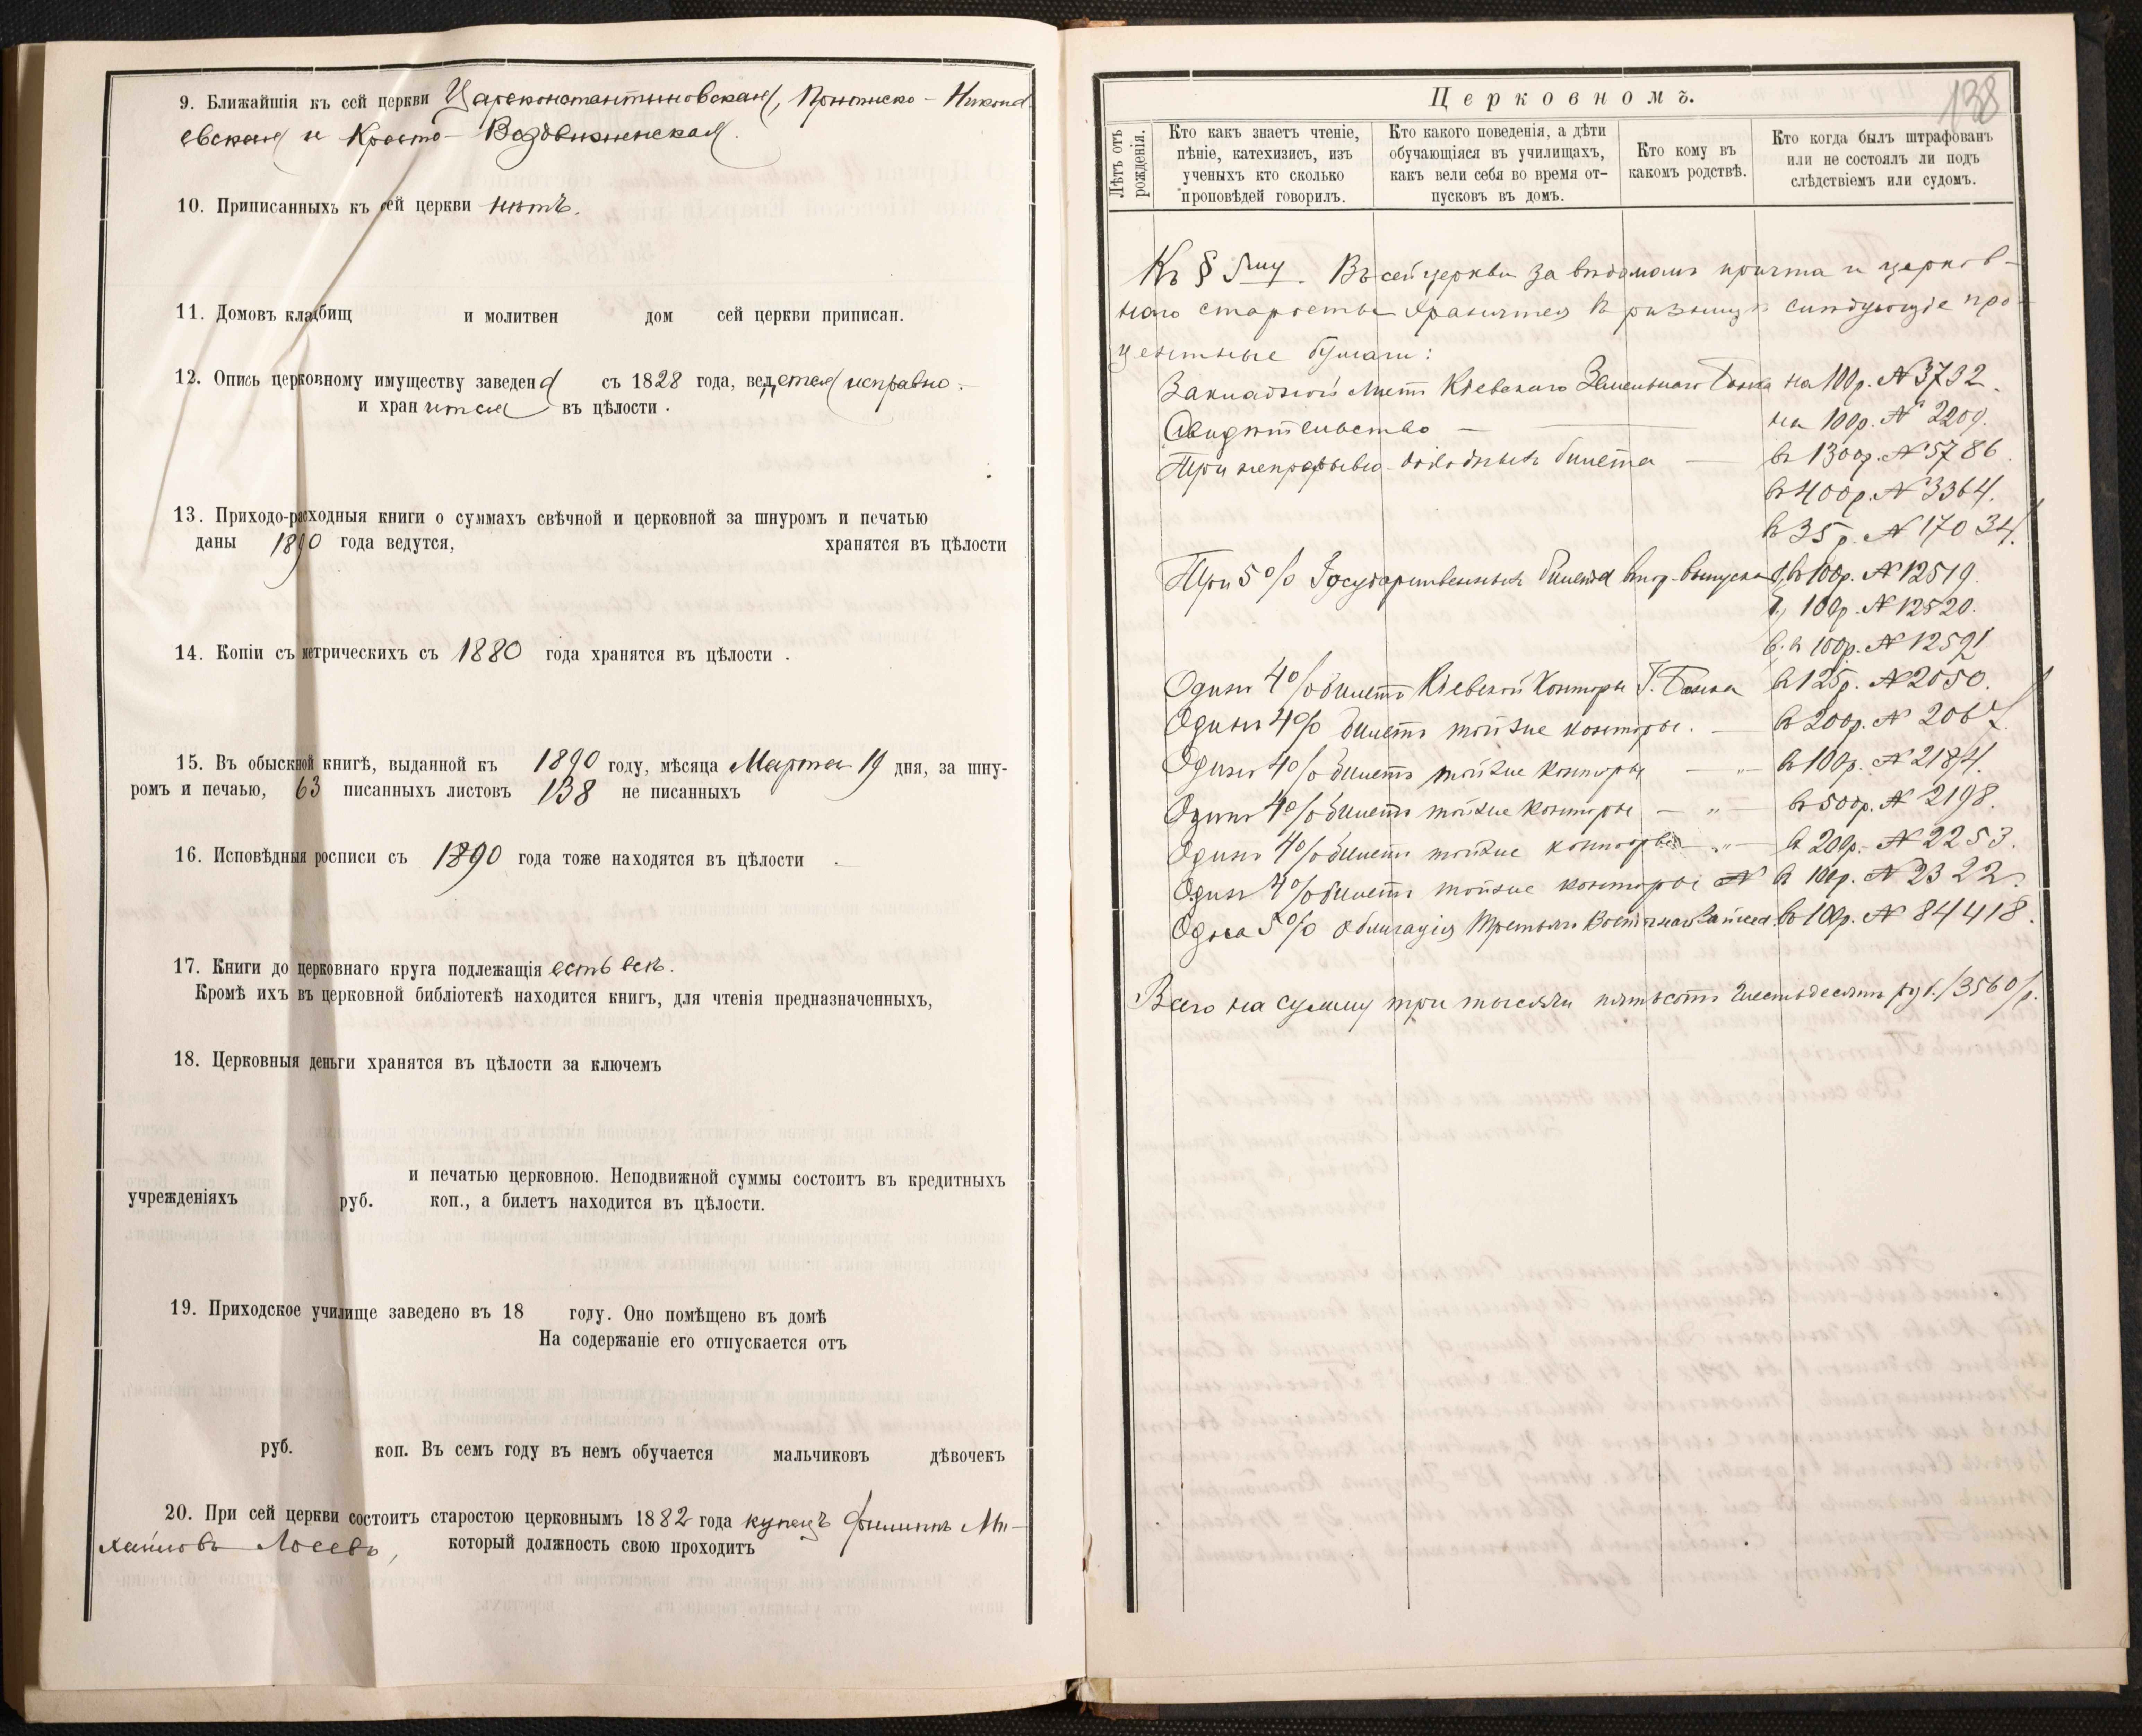 9. Ближайшія къ сей церкви Цареконстантиновская, Притиско-Никола-
евская и Кресто-Воздвиженская.
10. Приписанныхъ къ сей церкви нѣтъ.
11. Домовъ кладбищ и молитвен дом сей церкви приписан.
12. Опись церковному имуществу заведена съ 1828 года, ведется исправно.
и хранится въ цѣлости.
13. Приходо-расходныя книги о суммахъ свѣчной и церковной за шнуромъ и печатью
даны 1890 года ведутся, хранятся въ цѣлости
14. Копіи съ метрическихъ съ 1880 года хранятся въ цѣлости.
15. Въ обыскной книгѣ, выданной къ 1890 году, мѣсяца Марта 19 дня, за шну-
ромъ и печаью, 63 писанныхъ листовъ 138 не писанныхъ
16. Исповѣдныя росписи съ 1890 года тоже находятся въ цѣлости
17. Книги до церковнаго круга подлежащія есть всѣ.
Кромѣ ихъ въ церковной библіотекѣ находится книгъ, для чтенія предназначенныхъ,
18. Церковныя деньги хранятся въ цѣлости за ключемъ
и печатью церковною. Неподвижной суммы состоитъ въ кредитныхъ
учрежденіяхъ руб. коп., а билетъ находится въ цѣлости.
19. Приходское училище заведено въ 18 году. Оно помѣщено въ домѣ
На содержаніе его отпускается отъ
руб. коп. Въ семъ году въ немъ обучается мальчиковъ дѣвочекъ
20. При сей церкви состоитъ старостою церковнымъ 1882 года купецъ Филиппъ Ми-
хайловъ Лосевъ, который должность свою проходитъ
138
Церковномъ.
Лѣтъ отъ рожденія.
Кто какъ знаетъ чтеніе, пѣніе, катехизисъ, изъ ученыхъ кто сколько проповѣдей говорилъ.
Кто какого поведенія, а дѣти обучающіяся въ училищахъ, какъ вели себя во время отпусковъ въ домъ.
Кто кому въ какомъ родствѣ.
Кто когда былъ штрафованъ или не состоялъ ли подъ слѣдствіемъ или судомъ.
Къ § 5му. Въ сей церкви за вѣдомомъ причта и церков-
наго старосты хранятся въ ризницѣ слѣдующіе про-
центные бумаги:
Закладной листъ Кіевскаго Земельнаго Банка на 100р. № 3732.
Свидѣтельство — на 100р. № 2209.
Три непрерывно-доходныхъ билета — въ 1300р. № 5786.
въ 400р. № 3364.
въ 35р. № 17034.
Три 5% Государственныхъ билета втор. выпуска въ 100р. № 12519.
100р. № 12520.
въ 100р. № 12521
Одинъ 4% билетъ Кіевской Конторы Г. Банка въ 125р. № 2050.
Одинъ 4% билетъ той же конторы. — въ 200р. № 2067.
Одинъ 4% билетъ той же конторы — „ — въ 100р. № 2184.
Одинъ 4% билетъ той же конторы — „ — въ 500р. № 2198.
Одинъ 4% билетъ той же конторы — „ — въ 200р. № 2253.
Одинъ 4% билетъ той же конторы № въ 100р. № 2322.
Одна 5% облигація Третьяго Восточнаго Займа въ 100р. № 84418.
Всего на сумму три тысячи пятьсотъ шестьдесятъ руб. /3560/р.